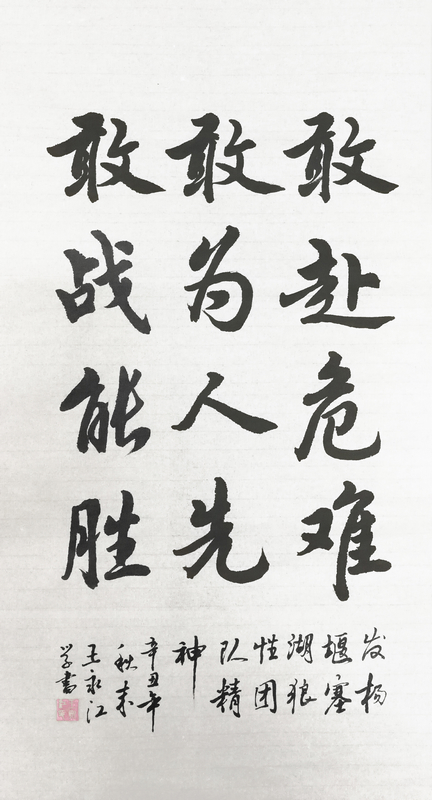 敢赴危难
敢为人先
敢战能胜
发杨
堰塞
湖狼
性团
队精
神
辛丑年
秋来
王永江
学书